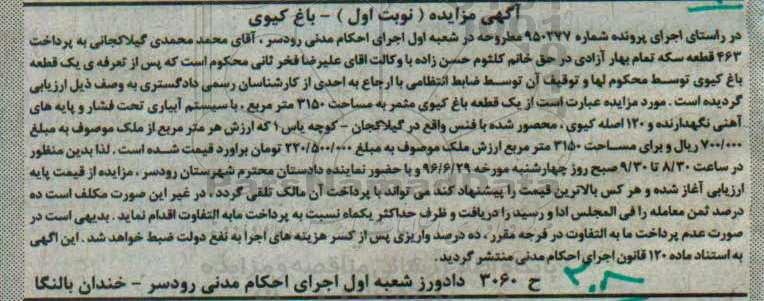 آگهی مزایده ( نوبت اول ) - باغ کیوی
در راستای اجرای پرونده شماره ۹۵۰۲۷۷ مطروحه در شعبه اول اجرای احکام مدنی رودسر ، آقای محمد محمدی گیلاکجانی به پرداخت
۴۶۳ قطعه سکه تمام بهار آزادی در حق خانم کلثوم حسن زاده با وکالت اقای علیرضا فخر ثانی محکوم است که پس از تعرفه ی یک قطعه
باغ کیوی توسط محکوم لها و توقیف آن توسط ضابط انتظامی با ارجاع به احدی از کارشناسان رسمی دادگستری به وصف ذیل ارزیابی
گردیده است . مورد مزایده عبارت است از یک قطعه باغ کیوی مثمر به مساحت ۳۱۵۰ متر مربع ، با سیستم آبیاری تحت فشار و پایه های
آهنی نگهدارنده و ۱۲۰ اصله کیوی ، محصور شده با فنس واقع در گیلاکجان - کوچه یاس ۱ که ارزش هر متر مربع از ملک موصوف به مبلغ
۷۰۰/۰۰۰ ریال و برای مساحت ۳۱۵۰ متر مربع ارزش ملک موصوف به مبلغ ۲۲۰/۵۰۰/۰۰۰ تومان براورد قیمت شده است . لذا بدین منظور
در ساعت ۸/۳۰ تا ۹/۳۰ صبح روز چهارشنبه مورخه ۹۶/۶/۲۹ و با حضور نماینده دادستان محترم شهرستان رودسر ، مزایده از قیمت پایه
ارزیابی آغاز شده و هر کس بالاترین قیمت را پیشنهاد کند می تواند با پرداخت آن مالک تلقی گردد ، در غیر این صورت مکلف است ده
درصد ثمن معامله را فی المجلس ادا و رسید را دریافت و ظرف حداکثر یکماه نسبت به پرداخت مابه التفاوت اقدام نماید . بدیهی است در
صورت عدم پرداخت ما به التفاوت در فرجه مقرر ، ده درصد واریزی پس از کسر هزینه های اجرا به نفع دولت ضبط خواهد شد . این اگهی
به استناد ماده ۱۲۰ قانون اجرای احکام مدنی منتشر گردید.
ح ۳۰۶۰ دادورز شعبه اول اجرای احکام مدنی رودسر - خندان بالنگا